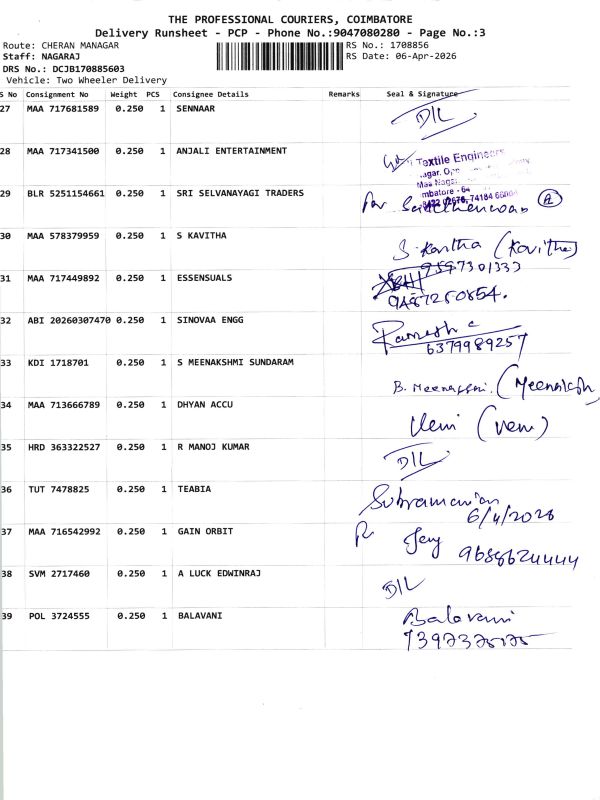 THE PROFESSIONAL COURIERS, COIMBATORE
Delivery Runsheet - PCP - Phone No.:9047080280 - Page No.:3
Route: CHERAN MANAGAR RS No.: 1708856
Staff: NAGARAJ RS Date: 06-Apr-2026
DRS No.: DCJB170885603
Vehicle: Two Wheeler Delivery
S No Consignment No Weight PCS Consignee Details Remarks Seal & Signature
27 MAA 717681589 0.250 1 SENNAAR D/L
28 MAA 717341500 0.250 1 ANJALI ENTERTAINMENT
Textile Engineers
29 BLR 5251154661 0.250 1 SRI SELVANAYAGI TRADERS
For
30 MAA 578379959 0.250 1 S KAVITHA S. Kavitha (Kavitha)
9597301333
31 MAA 717449892 0.250 1 ESSENSUALS
9487250854.
32 ABI 20260307470 0.250 1 SINOVAA ENGG Ramesh c
6379989257
33 KDI 1718701 0.250 1 S MEENAKSHMI SUNDARAM B. Meenakshi (Meenakshi
34 MAA 713666789 0.250 1 DHYAN ACCU Veni (Veni)
35 HRD 363322527 0.250 1 R MANOJ KUMAR D/L
36 TUT 7478825 0.250 1 TEABIA Subramanian
6/4/2026
37 MAA 716542992 0.250 1 GAIN ORBIT
9688624444
38 SVM 2717460 0.250 1 A LUCK EDWINRAJ D/L
39 POL 3724555 0.250 1 BALAVANI Balavani